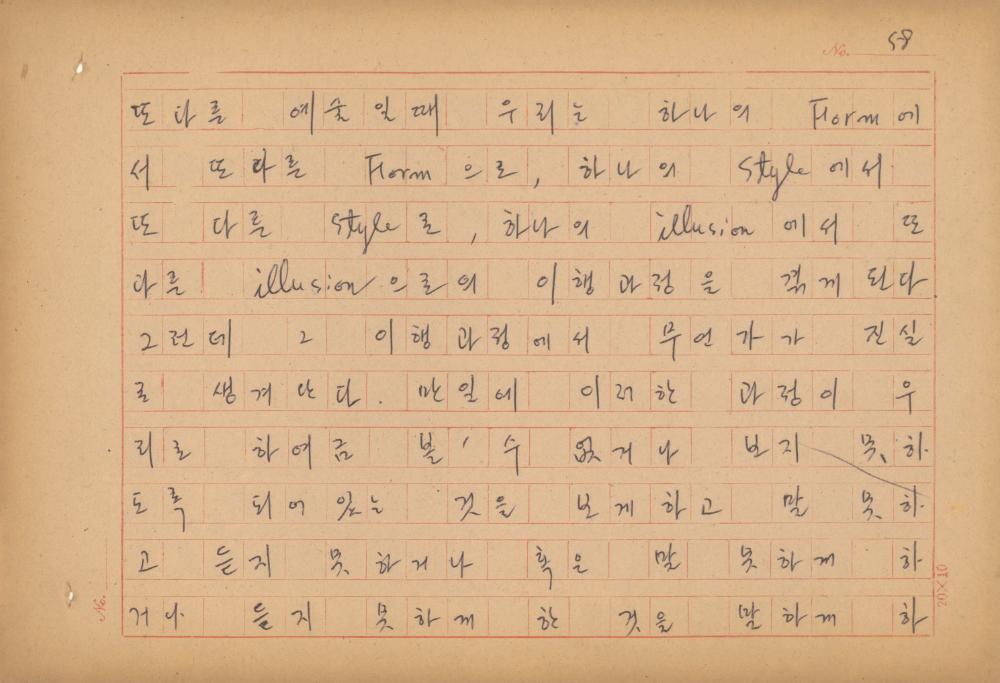 No. 58
또 다른 예술일때 우리는 하나의 Form에
서 또 다른 Form으로, 하나의 Style에서
또 다른 Style로, 하나의 illusion에서 또
다른 illusion으로의 이행과정을 겪게 된다
그런데 그 이행과정에서 무언가가 진실
로 생겨난다. 만일에 이러한 과정이 우
리로 하여금 볼 수 없거나 보지 못하
도록 되어 있는 것을 보게하고 말 못하
고 듣지 못하거나 혹은 말 못하게 하
거나 듣지 못하게 한 것을 말하게 하
No.
20×10